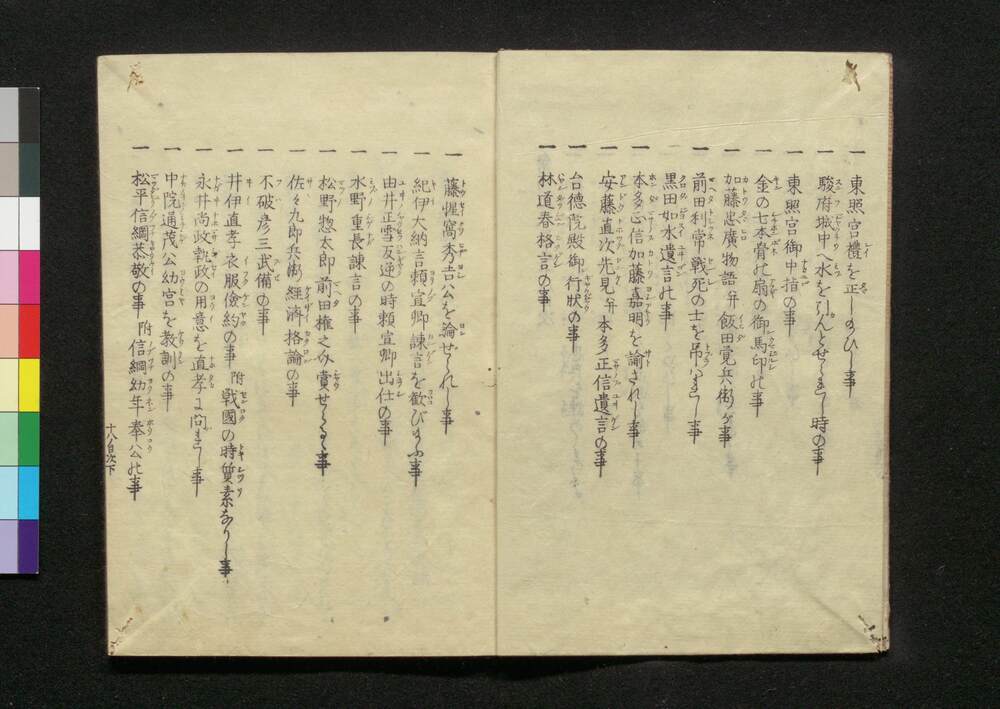 一 東照宮禮を正しのひし事
一 駿府城中へ水を引んとせまし時の事
一 東照宮御中指の事
一 金の七本骨の扇の御馬印の事
一 加藤忠廣物語弁飯田覚兵衛が事
一 前田利常戦死の士を吊はまし事
一 黒田如水遺言の事
一 本多正信加藤嘉明を諭されし事
一 安藤直次先見弁本多正信遺言の事
一 台徳院殿御行状の事
一 林道春格言の事
一 藤惺窩秀吉公を論せられし事
一 紀伊大納言頼宣卿諫言を歓び給ふ事
一 由井正雪反逆の時頼宣卿出仕の事
一 水野重長諫言の事
一 松野惣太郎前田権之介賞せらるゝ事
一 佐々九郎兵衛経済格論の事
一 不破彦三武備の事
一 井伊直孝衣服儉約の事 附 戦國の時質素なりし事
一 永井尚政執政の用意を直孝に問まし事
一 中院通茂公幼宮を教訓の事
一 松平信綱恭敬の事 附 信綱幼年奉公の事
十八目次下